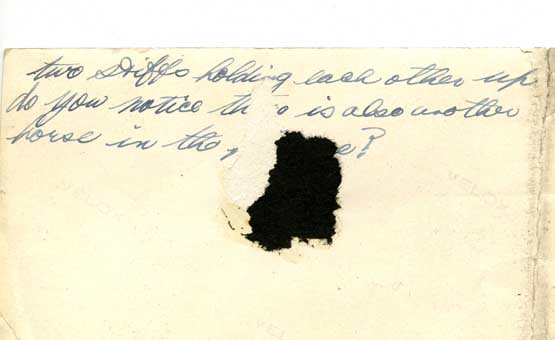 two Stiffs holding each other up
do you notice is also another
horse in the